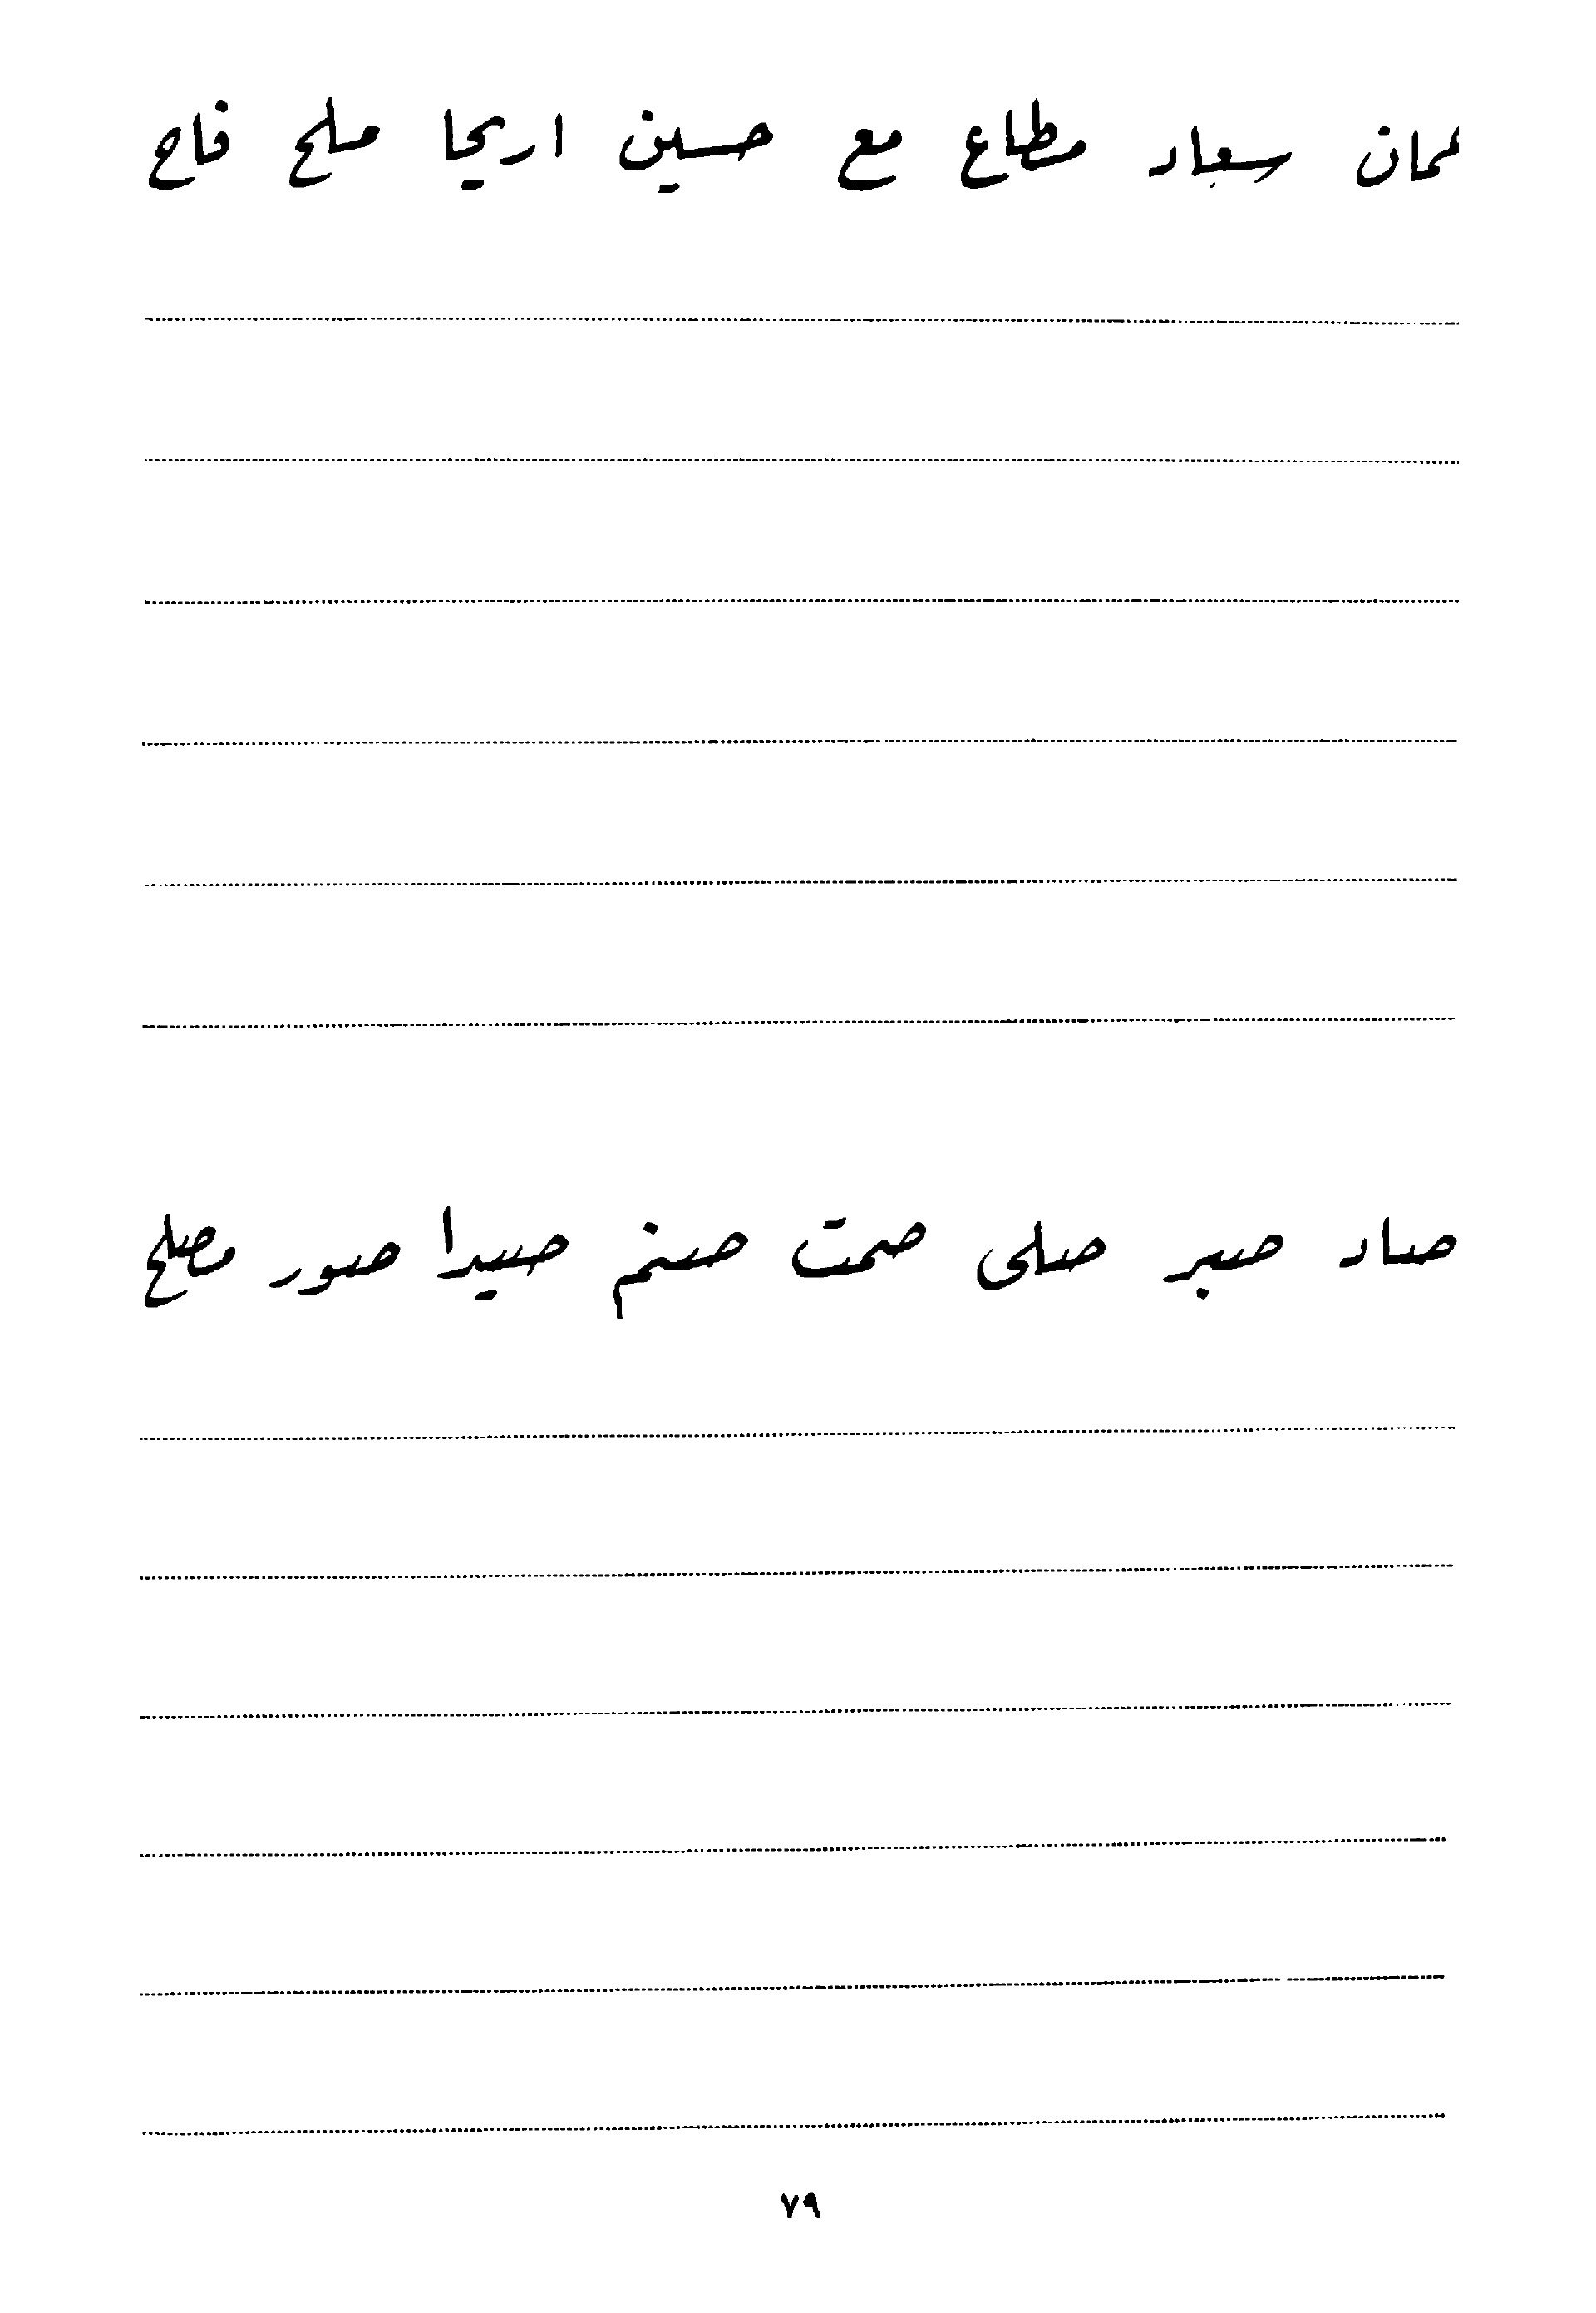 عمان سعاد مطاع مع حسين اريحا ملح فاح
صاد صبر صلى صمت صنم صيدا صور مصلح
٧٩